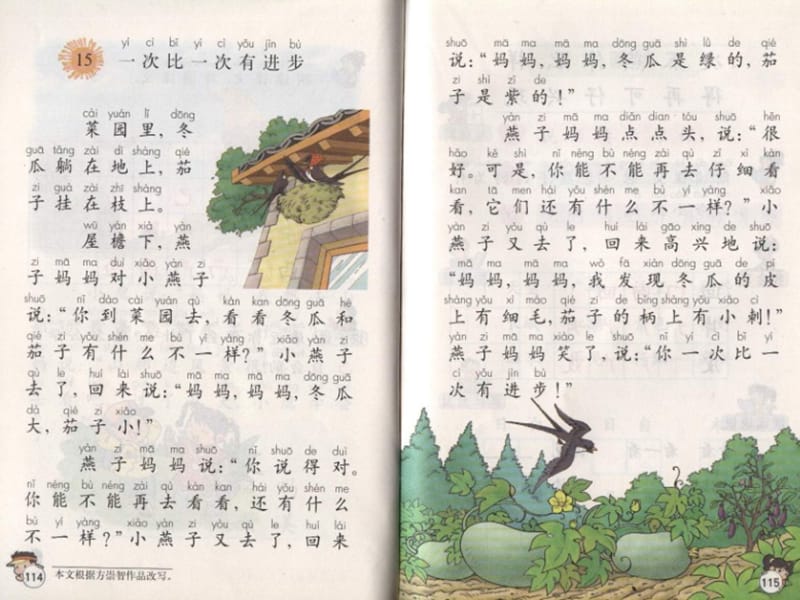 15
yí cì bǐ yí cì yǒu jìn bù
一次比一次有进步
cài yuán lǐ dōng
菜园里，冬
guā tǎng zài dì shàng qié
瓜躺在地上，茄
zi guà zài zhī shàng
子挂在枝上。
wū yán xià yàn
屋檐下，燕
zi mā ma duì xiǎo yàn zi
子妈妈对小燕子
shuō nǐ dào cài yuán qù kàn kan dōng guā hé
说：“你到菜园去，看看冬瓜和
qié zi yǒu shén me bù yí yàng xiǎo yàn zi
茄子有什么不一样？”小燕子
qù le huí lái shuō mā ma mā ma dōng guā
去了，回来说：“妈妈，妈妈，冬瓜
dà qié zi xiǎo
大，茄子小！”
yàn zi mā ma shuō nǐ shuō de duì
燕子妈妈说：“你说得对。
nǐ néng bù néng zài qù kàn kan hái yǒu shén me
你能不能再去看看，还有什么
bù yí yàng xiǎo yàn zi yòu qù le huí lái
不一样？”小燕子又去了，回来
114
本文根据方崇智作品改写。
shuō mā ma mā ma dōng guā shì lǜ de qié
说：“妈妈，妈妈，冬瓜是绿的，茄
zi shì zǐ de
子是紫的！”
yàn zi mā ma diǎn dian tóu shuō hěn
燕子妈妈点点头，说：“很
hǎo kě shì nǐ néng bù néng zài qù zǐ xì kàn
好。可是，你能不能再去仔细看
kan tā men hái yǒu shén me bù yí yàng xiǎo
看，它们还有什么不一样？”小
yàn zi yòu qù le huí lái gāo xìng de shuō
燕子又去了，回来高兴地说：
mā ma mā ma wǒ fā xiàn dōng guā de pí
“妈妈，妈妈，我发现冬瓜的皮
shàng yǒu xì máo qié zi de bǐng shàng yǒu xiǎo cì
上有细毛，茄子的柄上有小刺！”
yàn zi mā ma xiào le shuō nǐ yí cì bǐ yí
燕子妈妈笑了，说：“你一次比一
cì yǒu jìn bù
次有进步！”
115